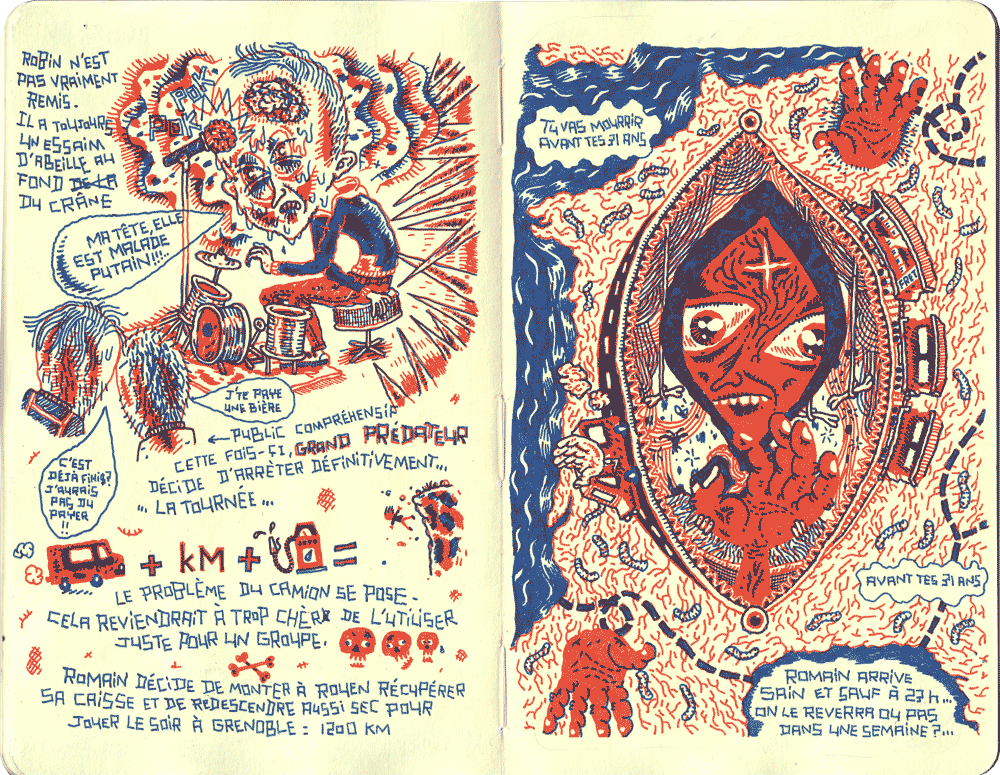 ROBIN N'EST
PAS VRAIMENT
REMIS.
IL A TOUJOURS
UN ESSAIM
D'ABEILLE AU
FOND DE LA
DU CRÂNE
POK
POK
MA TÊTE, ELLE
EST MALADE
PUTAIN!!!
J'TE PAYE
UNE BIÈRE
← PUBLIC COMPRÉHENSIF
C'EST
DÉJÀ FINIS?
J'AURAIS
PAS DU
PAYER
!!
CETTE FOIS-FI, GRAND PRÉDATEUR
DÉCIDE D'ARRÈTER DÉFINITIVEMENT...
... LA TOURNÉE ...
+ KM + =
LE PROBLÈME DU CAMION SE POSE.
CELA REVIENDRAIT À TROP CHÈR DE L'UTILISER
JUSTE POUR UN GROUPE.
ROMAIN DÉCIDE DE MONTER À ROUEN RÉCUPÉRER
SA CAISSE ET DE REDESCENDRE AUSSI SEC POUR
JOUER LE SOIR À GRENOBLE : 1200 KM
TU VAS MOURRIR
AVANT TES 31 ANS
FRET
AVANT TES 31 ANS
ROMAIN ARRIVE
SAIN ET SAUF À 23 H...
ON LE REVERRA OU PAS
DANS UNE SEMAINE ?...